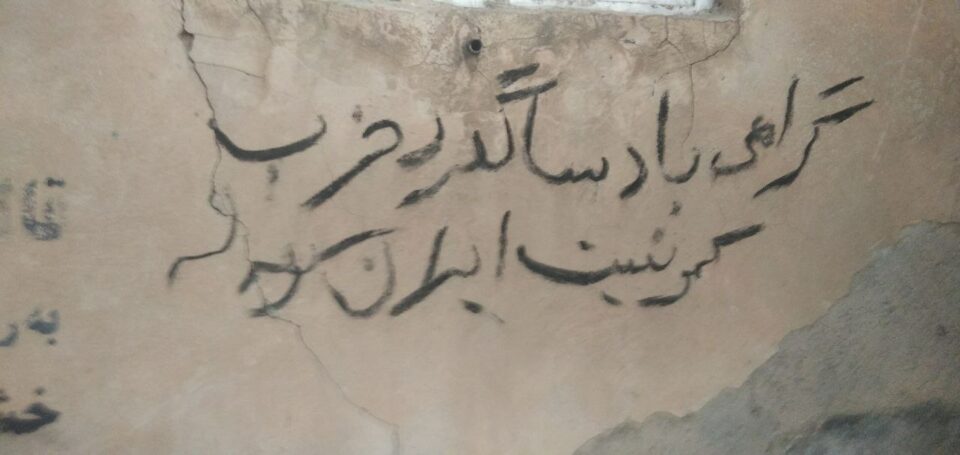 گرامی باد سالگرد حزب
کمونیست ایران کومه له